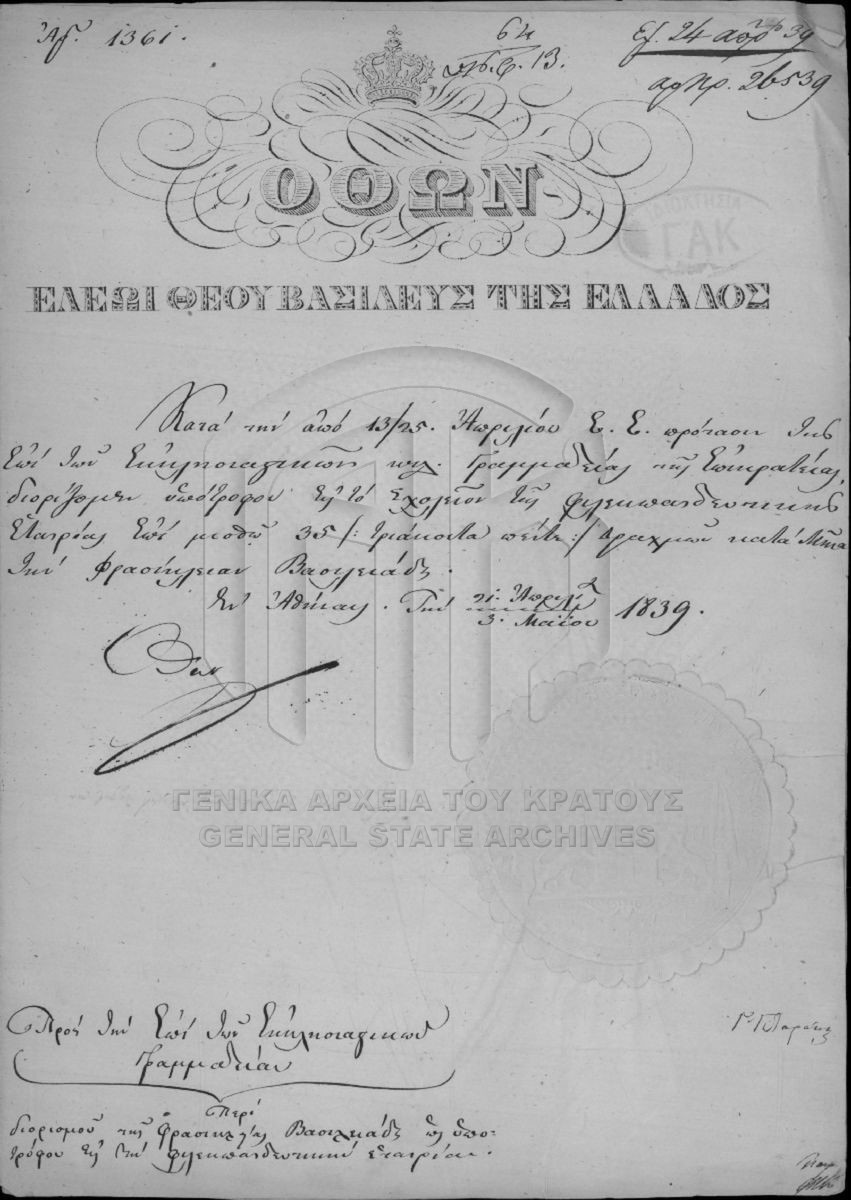 Ἀρ. 1361.
ΟΘΩΝ
ΕΛΕΩΙ ΘΕΟΥ ΒΑΣΙΛΕΥΣ ΤΗΣ ΕΛΛΑΔΟΣ
ΙΔΙΟΚΤΗΣΙΑ
ΓΑΚ
Κατά την από 13/25. Απριλίου Ε. Ε. πρότασιν της
επί των Εκκλησιαστικών κτλ. Γραμματείας της Επικρατείας,
διορίζομεν υπότροφον εις το Σχολείον της φιλεκπαιδευτικής
Εταιρίας επί μισθώ 35 /: τριάκοντα πέντε :/ δραχμών κατά Μήνα
την Φρασίκλειαν Βασιλειάδου.
Εν Αθήναις. Την 21. Απριλίου
3. Μαΐου 1839.
Όθων
ΓΕΝΙΚΑ ΑΡΧΕΙΑ ΤΟΥ ΚΡΑΤΟΥΣ
GENERAL STATE ARCHIVES
Προς την επί των Εκκλησιαστικών
Γραμματείαν
Περί
διορισμού της Φρασικλείας Βασιλειάδου ως υπο-
τρόφου εις την φιλεκπαιδευτικήν εταιρίαν.